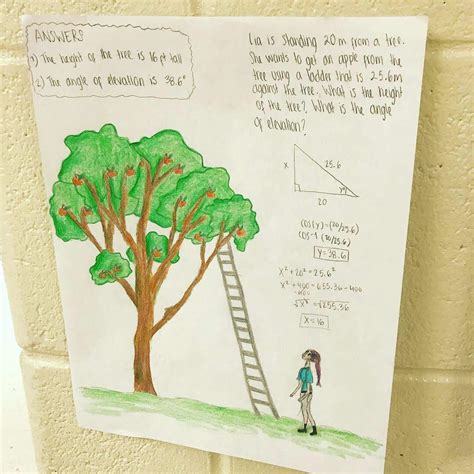 ANSWERS
1) The height of the tree is 16 ft tall
2) The angle of elevation is 38.6°
Lia is standing 20 m from a tree.
She wants to get an apple from the
tree using a ladder that is 25.6m
against the tree. What is the height
of the tree? What is the angle
of elevation?
x
25.6
y°
20
cos(y)=(20/25.6)
cos⁻¹(20/25.6)
y=38.6
x²+20²=25.6²
x²+400=655.36-400
-400
√x²=√255.36
x=16